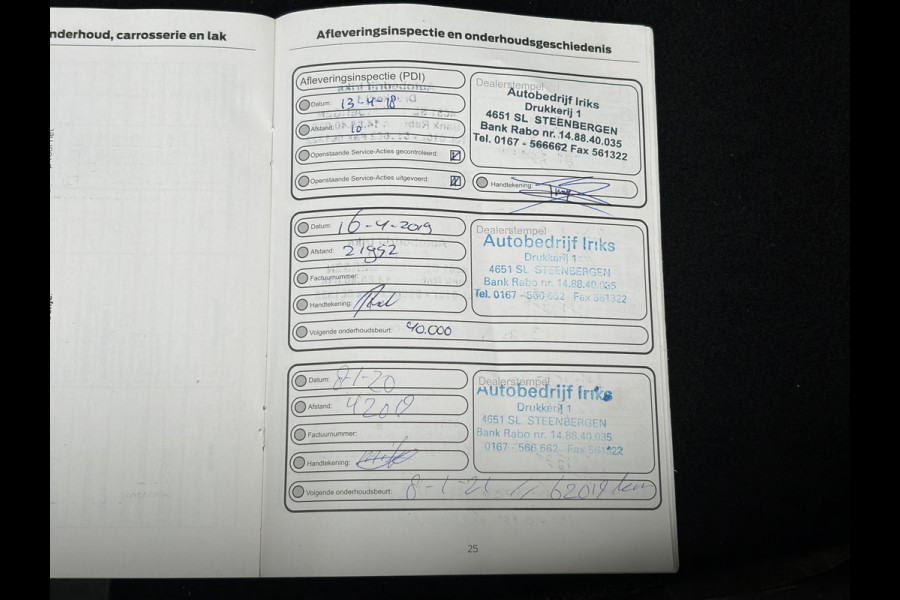 nderhoud, carrosserie en lak
Afleveringsinspectie en onderhoudsgeschiedenis
Afleveringsinspectie (PDI)
Datum: 13-4-18
Afstand: 10
Openstaande Service-Acties gecontroleerd:
Openstaande Service-Acties uitgevoerd:
Dealerstempel
Autobedrijf Iriks
Drukkerij 1
4651 SL STEENBERGEN
Bank Rabo nr. 14.88.40.035
Tel. 0167 - 566662 Fax 561322
Handtekening:
Datum: 16-4-2019
Afstand: 21992
Factuurnummer:
Handtekening:
Volgende onderhoudsbeurt: 40.000
Dealerstempel
Autobedrijf Iriks
Drukkerij 1
4651 SL STEENBERGEN
Bank Rabo nr. 14.88.40.035
Tel. 0167 - 566 662 Fax 561322
Datum: 8-1-20
Afstand: 42019
Factuurnummer:
Handtekening:
Volgende onderhoudsbeurt: 8-1-21 // 62019 km
Dealerstempel
Autobedrijf Iriks
Drukkerij 1
4651 SL STEENBERGEN
Bank Rabo nr. 14.88.40.035
0167 - 566 662 - Fax 561322
25